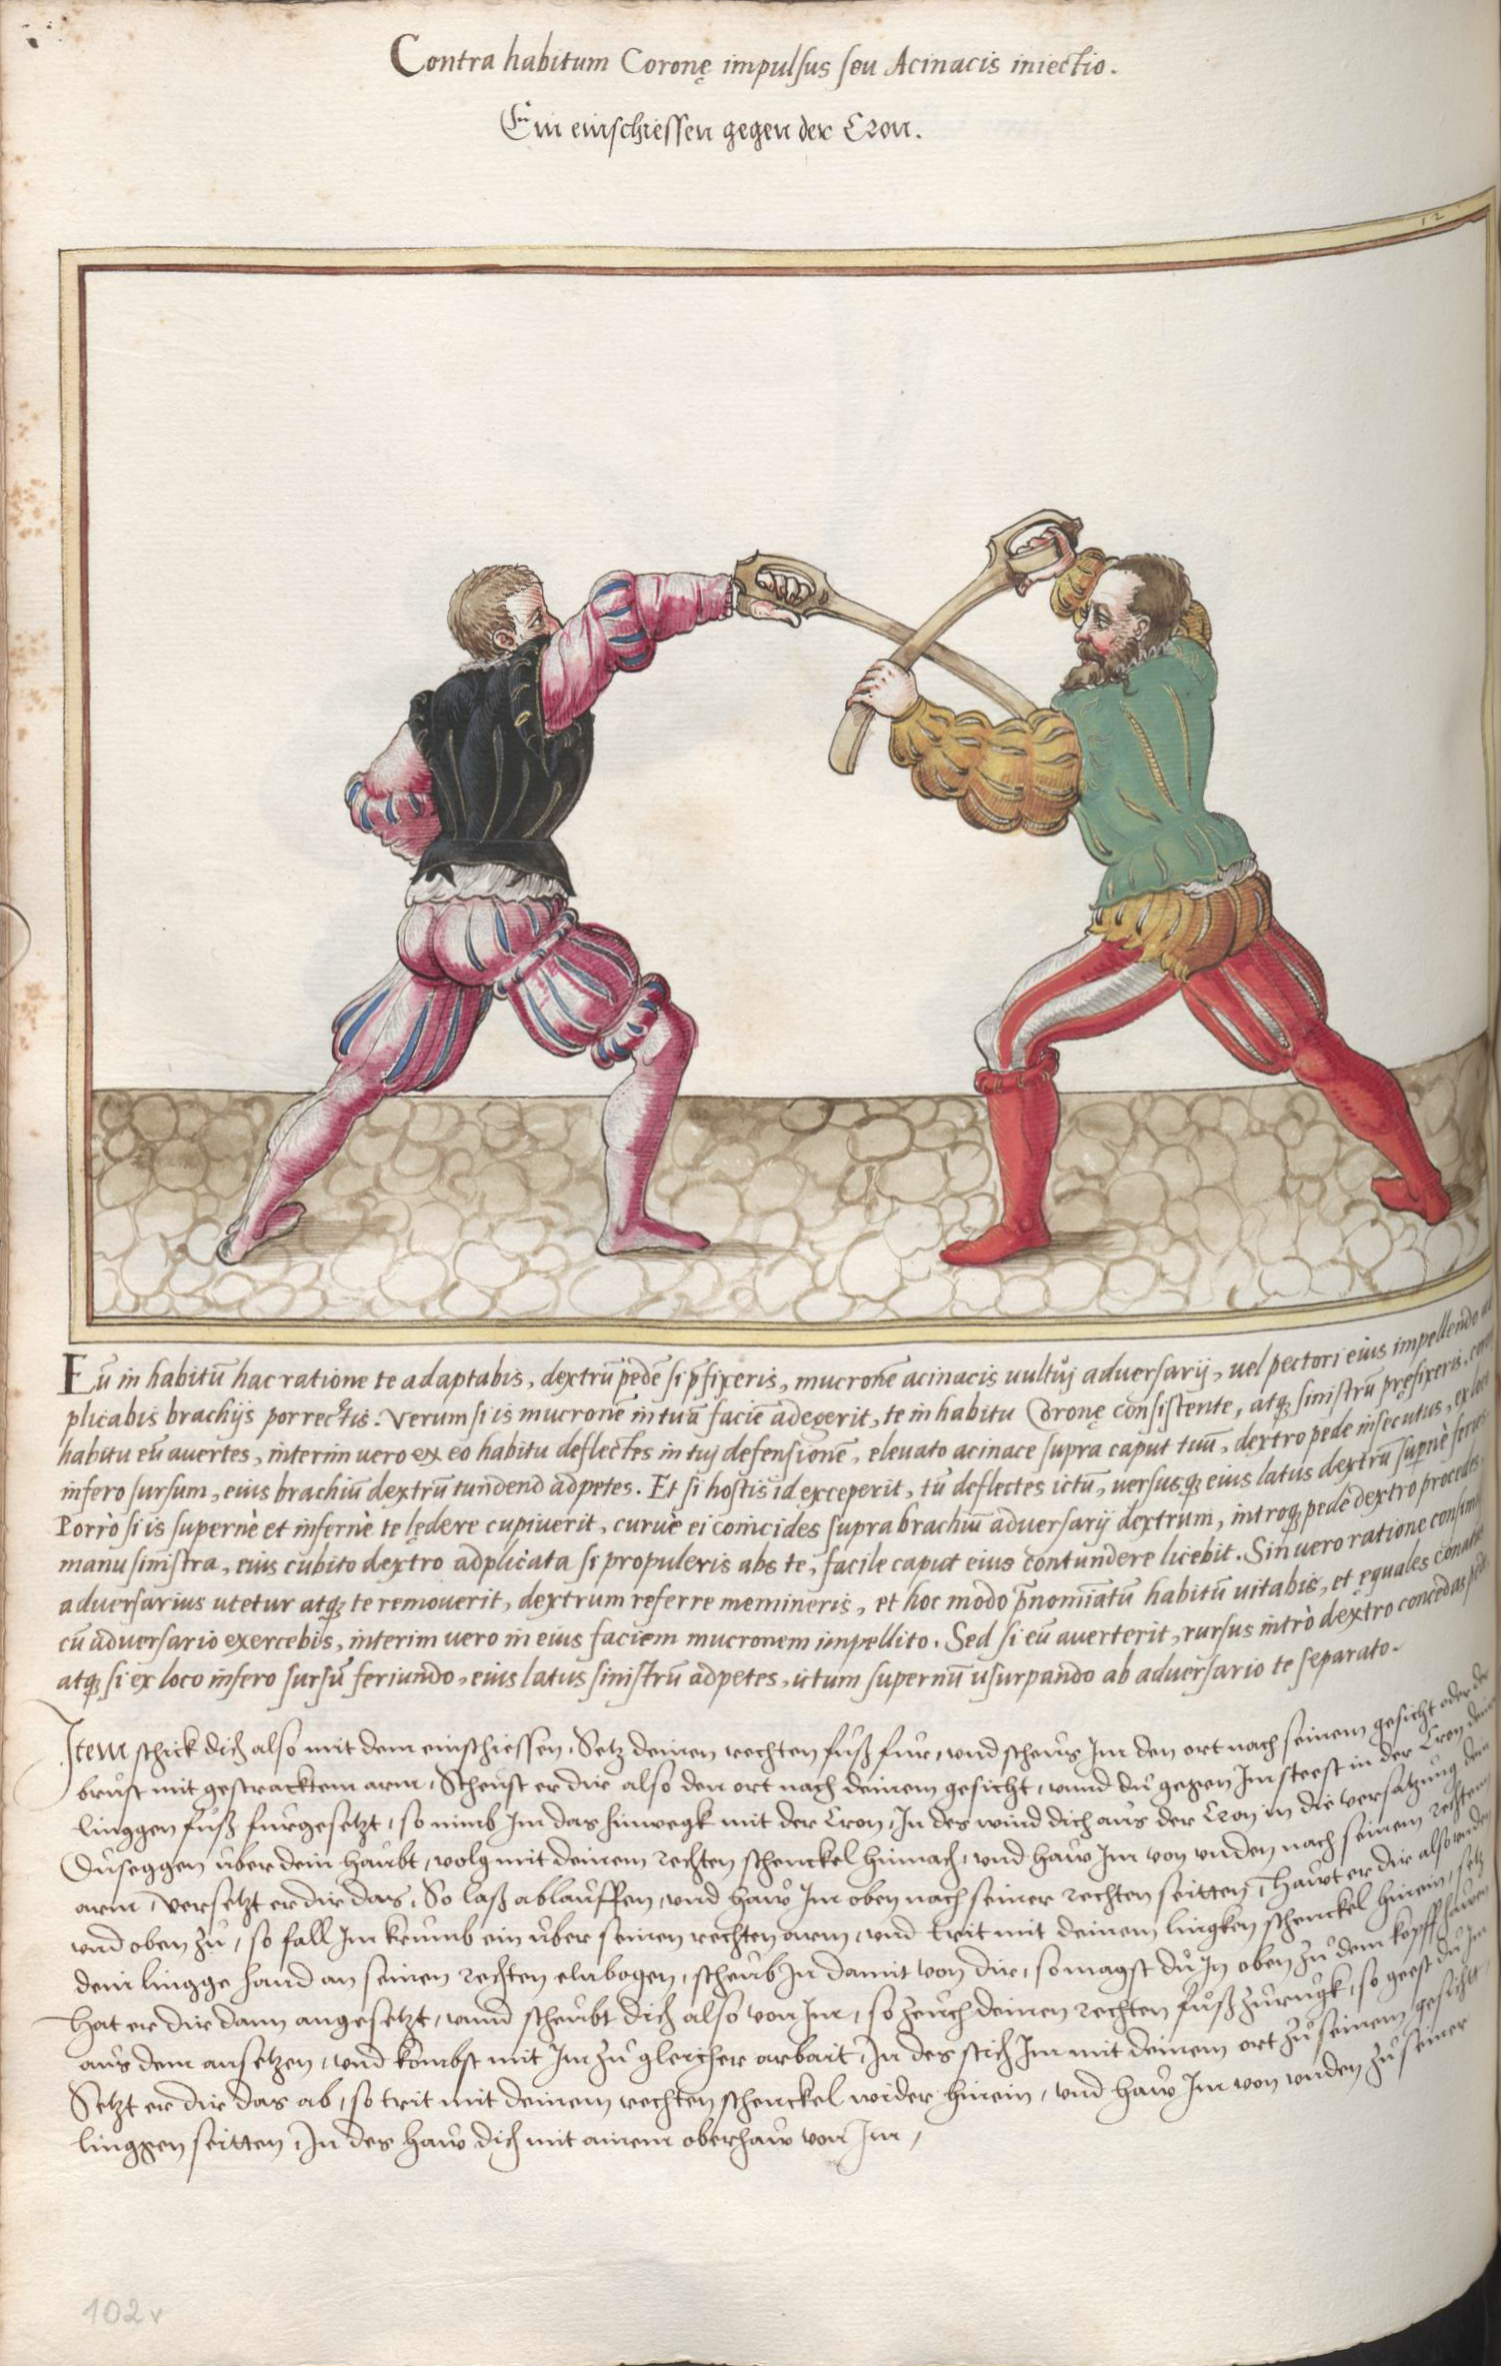 Contra habitum Coronę impulsus seu Acinacis iniectio.
Ein einschiessen gegen der Cron.
12
Eū in habitū hac ratione te adaptabis, dextrū pedē si p̄fixeris, mucronē acinacis uultuj aduersarij, uel pectori eius impellendo ad
plicabis brachijs porrectis. Verum si is mucronē in tuā faciē adegerit, te in habitu Coronę consistente, atq; sinistrū pręfixeris,
habitu eū auertes, interim uero ex eo habitu deflectes in tuj defensionē, eleuato acinace supra caput tuū, dextro pede insecutus, ex loco
infero sursum, eius brachiū dextrū tundend adpetes. Et si hostis id exceperit, tū deflectes ictū, uersusq; eius latus dextrū supernè
Porrò si is supernè et infernè te lędere cupiuerit, curuè ei conicides supra brachiū aduersarij dextrum, introq; pede dextro procedes,
manu sinistra, eius cubito dextro adplicata si propuleris abs te, facile caput eius contundere licebit. Sin uero ratione consimili
aduersarius utetur atq; te remouerit, dextrum referre memineris, et hoc modo p̄nomiatū habitū uitabis, et ęquales conatus
cū aduersario exercebis, interim uero in eius faciem mucronem impellito. Sed si eū auerterit, rursus intrò dextro concedas
atq; si ex loco infero sursū feriundo, eius latus sinistrū adpetes, ictum supernū usurpando ab aduersario te separato.
Item schick dich also mit dem einschiessen, Setz deinen rechten fuß fur, vnd scheus Im den ort nach seinem gesicht oder der
brust mit gestracktem arm, Scheust er dir also den ort nach deinem gesicht, vnnd du gegen Im steest in der Cron
linggen fuß furgesetzt, so nimb Im das hinwegk mit der Cron, In des wind dich aus der Cron in die versatzung
Duseggen uber dein haubt, volg mit deinem rechten schenckel hinnach, vnd haw Im von vnden nach seinem rechten
arm, versetzt er dir das, So laß ablauffen, vnd haw Im oben nach seiner rechten seitten, hawt er dir also vnden
vnd oben zu, so fall Im krumb ein uber seinen rechten arm, vnd trit mit deinem lingken schenckel hinein, setz
dein lingge hand an seinen rechten elnbogen, scheub In damit von dir, so magst du In oben zu dem kopff hawen
Hat er dir dann angesetzt, vnnd scheubt dich also von Im, so zeuch deinen rechten fuß zurugk, so geest du Im
aus dem ansetzen, vnd kombst mit Im zu gleicher arbait, In des stich Im mit deinem ort zu seinem gesicht,
Setzt er dir das ab, so trit mit deinem rechten schenckel wider hinein, vnd haw Im von vnden zu seiner
linggen seitten, In des haw dich mit ainem oberhaw von Im,
102v